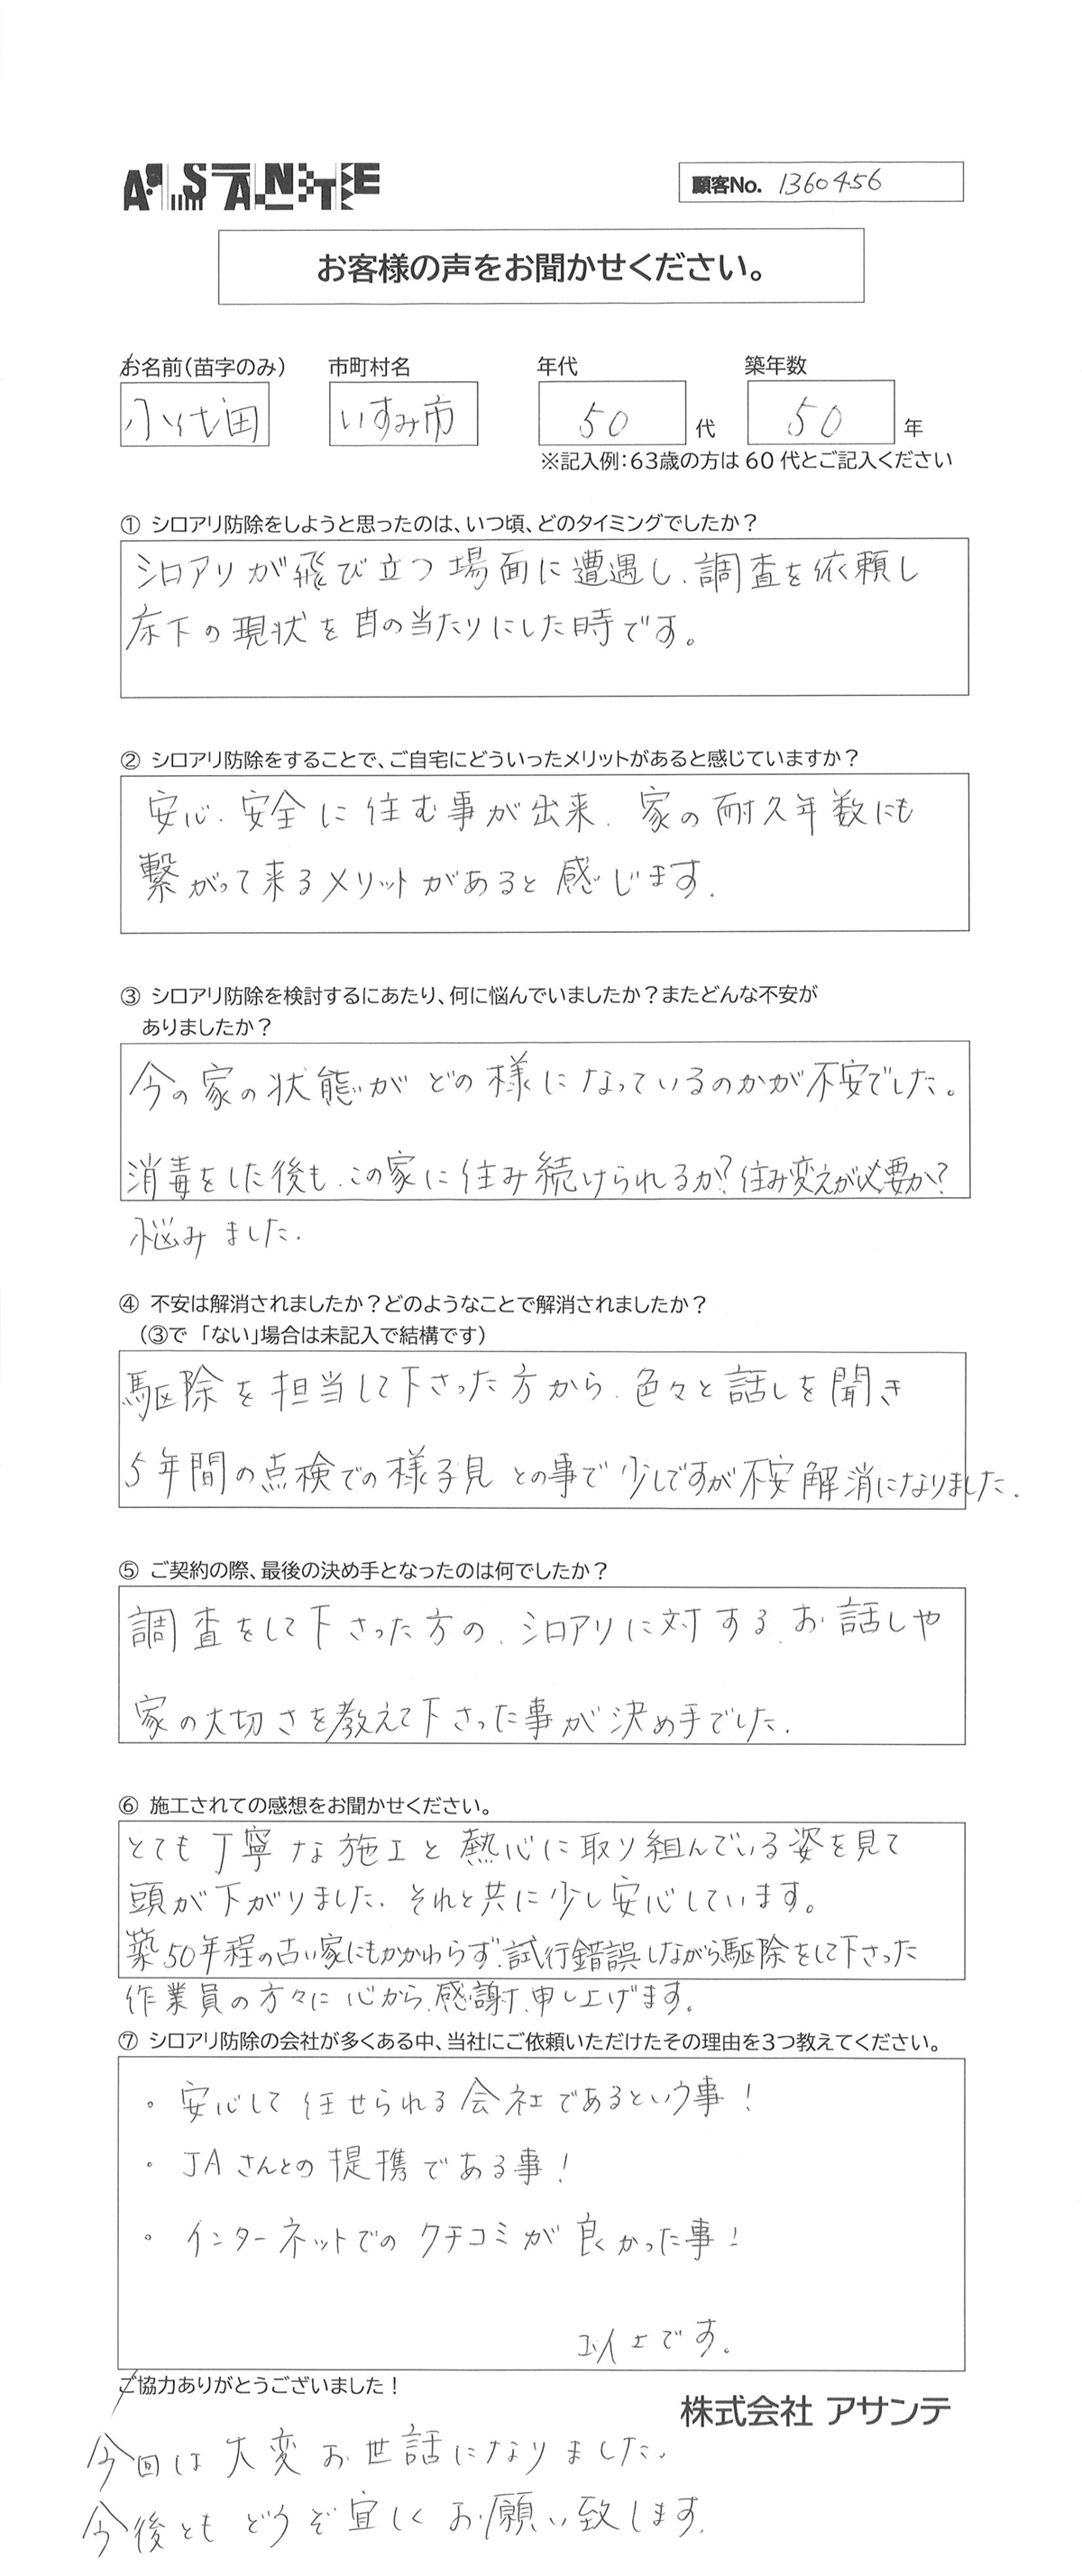 ASANTE
顧客No. 1360456
お客様の声をお聞かせください。
お名前(苗字のみ) 市町村名 年代 築年数
小代田 いすみ市 50 代 50 年
※記入例:63歳の方は60代とご記入ください
① シロアリ防除をしようと思ったのは、いつ頃、どのタイミングでしたか?
シロアリが飛び立つ場面に遭遇し、調査を依頼し
床下の現状を目の当たりにした時です。
② シロアリ防除をすることで、ご自宅にどういったメリットがあると感じていますか?
安心、安全に住む事が出来、家の耐久年数にも
繋がって来るメリットがあると感じます。
③ シロアリ防除を検討するにあたり、何に悩んでいましたか?またどんな不安が
ありましたか?
今の家の状態がどの様になっているのかが不安でした。
消毒をした後も、この家に住み続けられるか?住み変えが必要か?
悩みました。
④ 不安は解消されましたか?どのようなことで解消されましたか?
(③で「ない」場合は未記入で結構です)
駆除を担当して下さった方から、色々と話しを聞き
5年間の点検での様子見との事で少しですが不安解消になりました。
⑤ ご契約の際、最後の決め手となったのは何でしたか?
調査をして下さった方の、シロアリに対する、お話しや
家の大切さを教えて下さった事が決め手でした。
⑥ 施工されての感想をお聞かせください。
とても丁寧な施工と熱心に取り組んでいる姿を見て
頭が下がりました、それと共に少し安心しています。
築50年程の古い家にもかかわらず、試行錯誤しながら駆除をして下さった
作業員の方々に心から、感謝、申し上げます。
⑦ シロアリ防除の会社が多くある中、当社にご依頼いただけたその理由を3つ教えてください。
・安心して任せられる会社であるという事!
・JAさんとの提携である事!
・インターネットでのクチコミが良かった事!
以上です。
ご協力ありがとうございました!
株式会社 アサンテ
今回は大変お世話になりました。
今後ともどうぞ宜しくお願い致します。